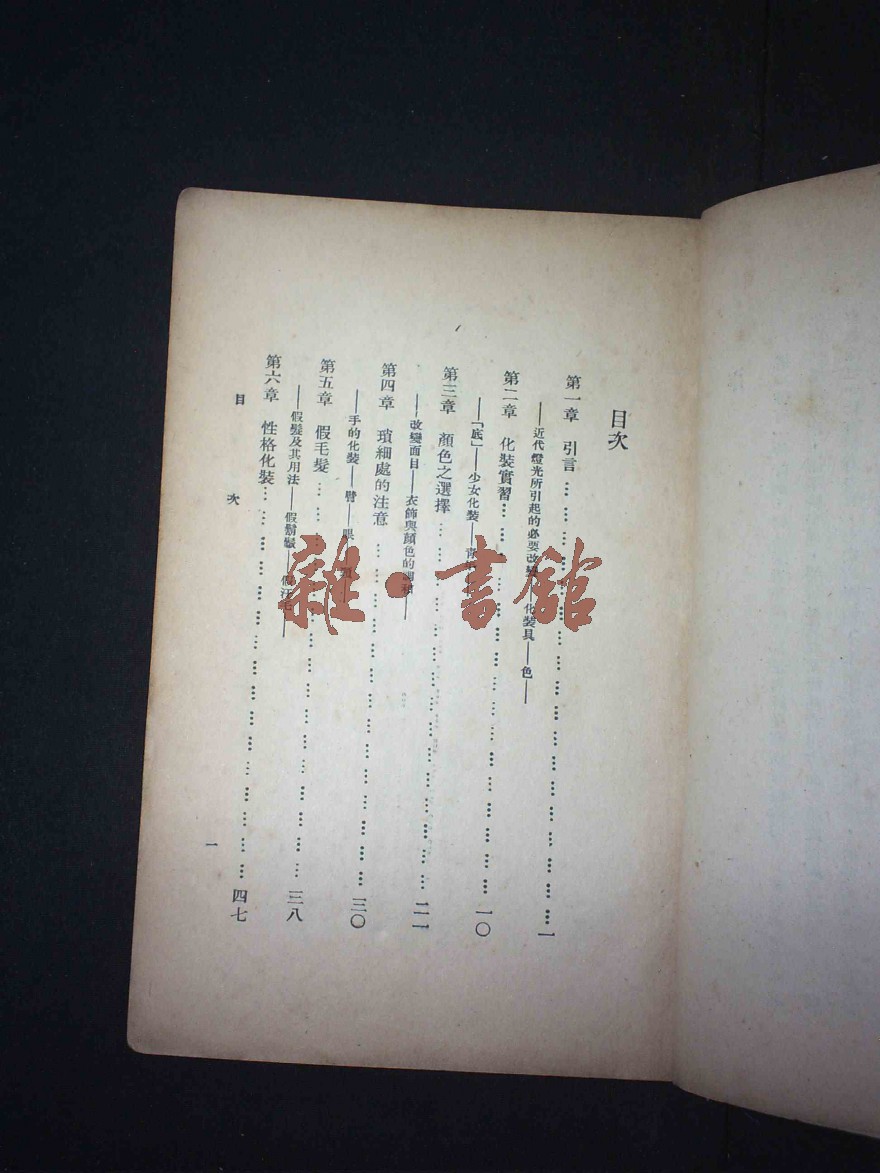 目次
第一章 引言………一
——近代燈光所引起的必要改變——化裝具——色——
第二章 化裝實習………一〇
——「底」——少女化裝——青
第三章 顏色之選擇………二一
——改變面目——衣飾與顏色的調和——
第四章 瑣細處的注意………三〇
——手的化裝——臂——眼——
第五章 假毛髮………三八
——假髮及其用法——假鬍鬚——假汗毛——
第六章 性格化裝………四七
目次
一
雜·書館